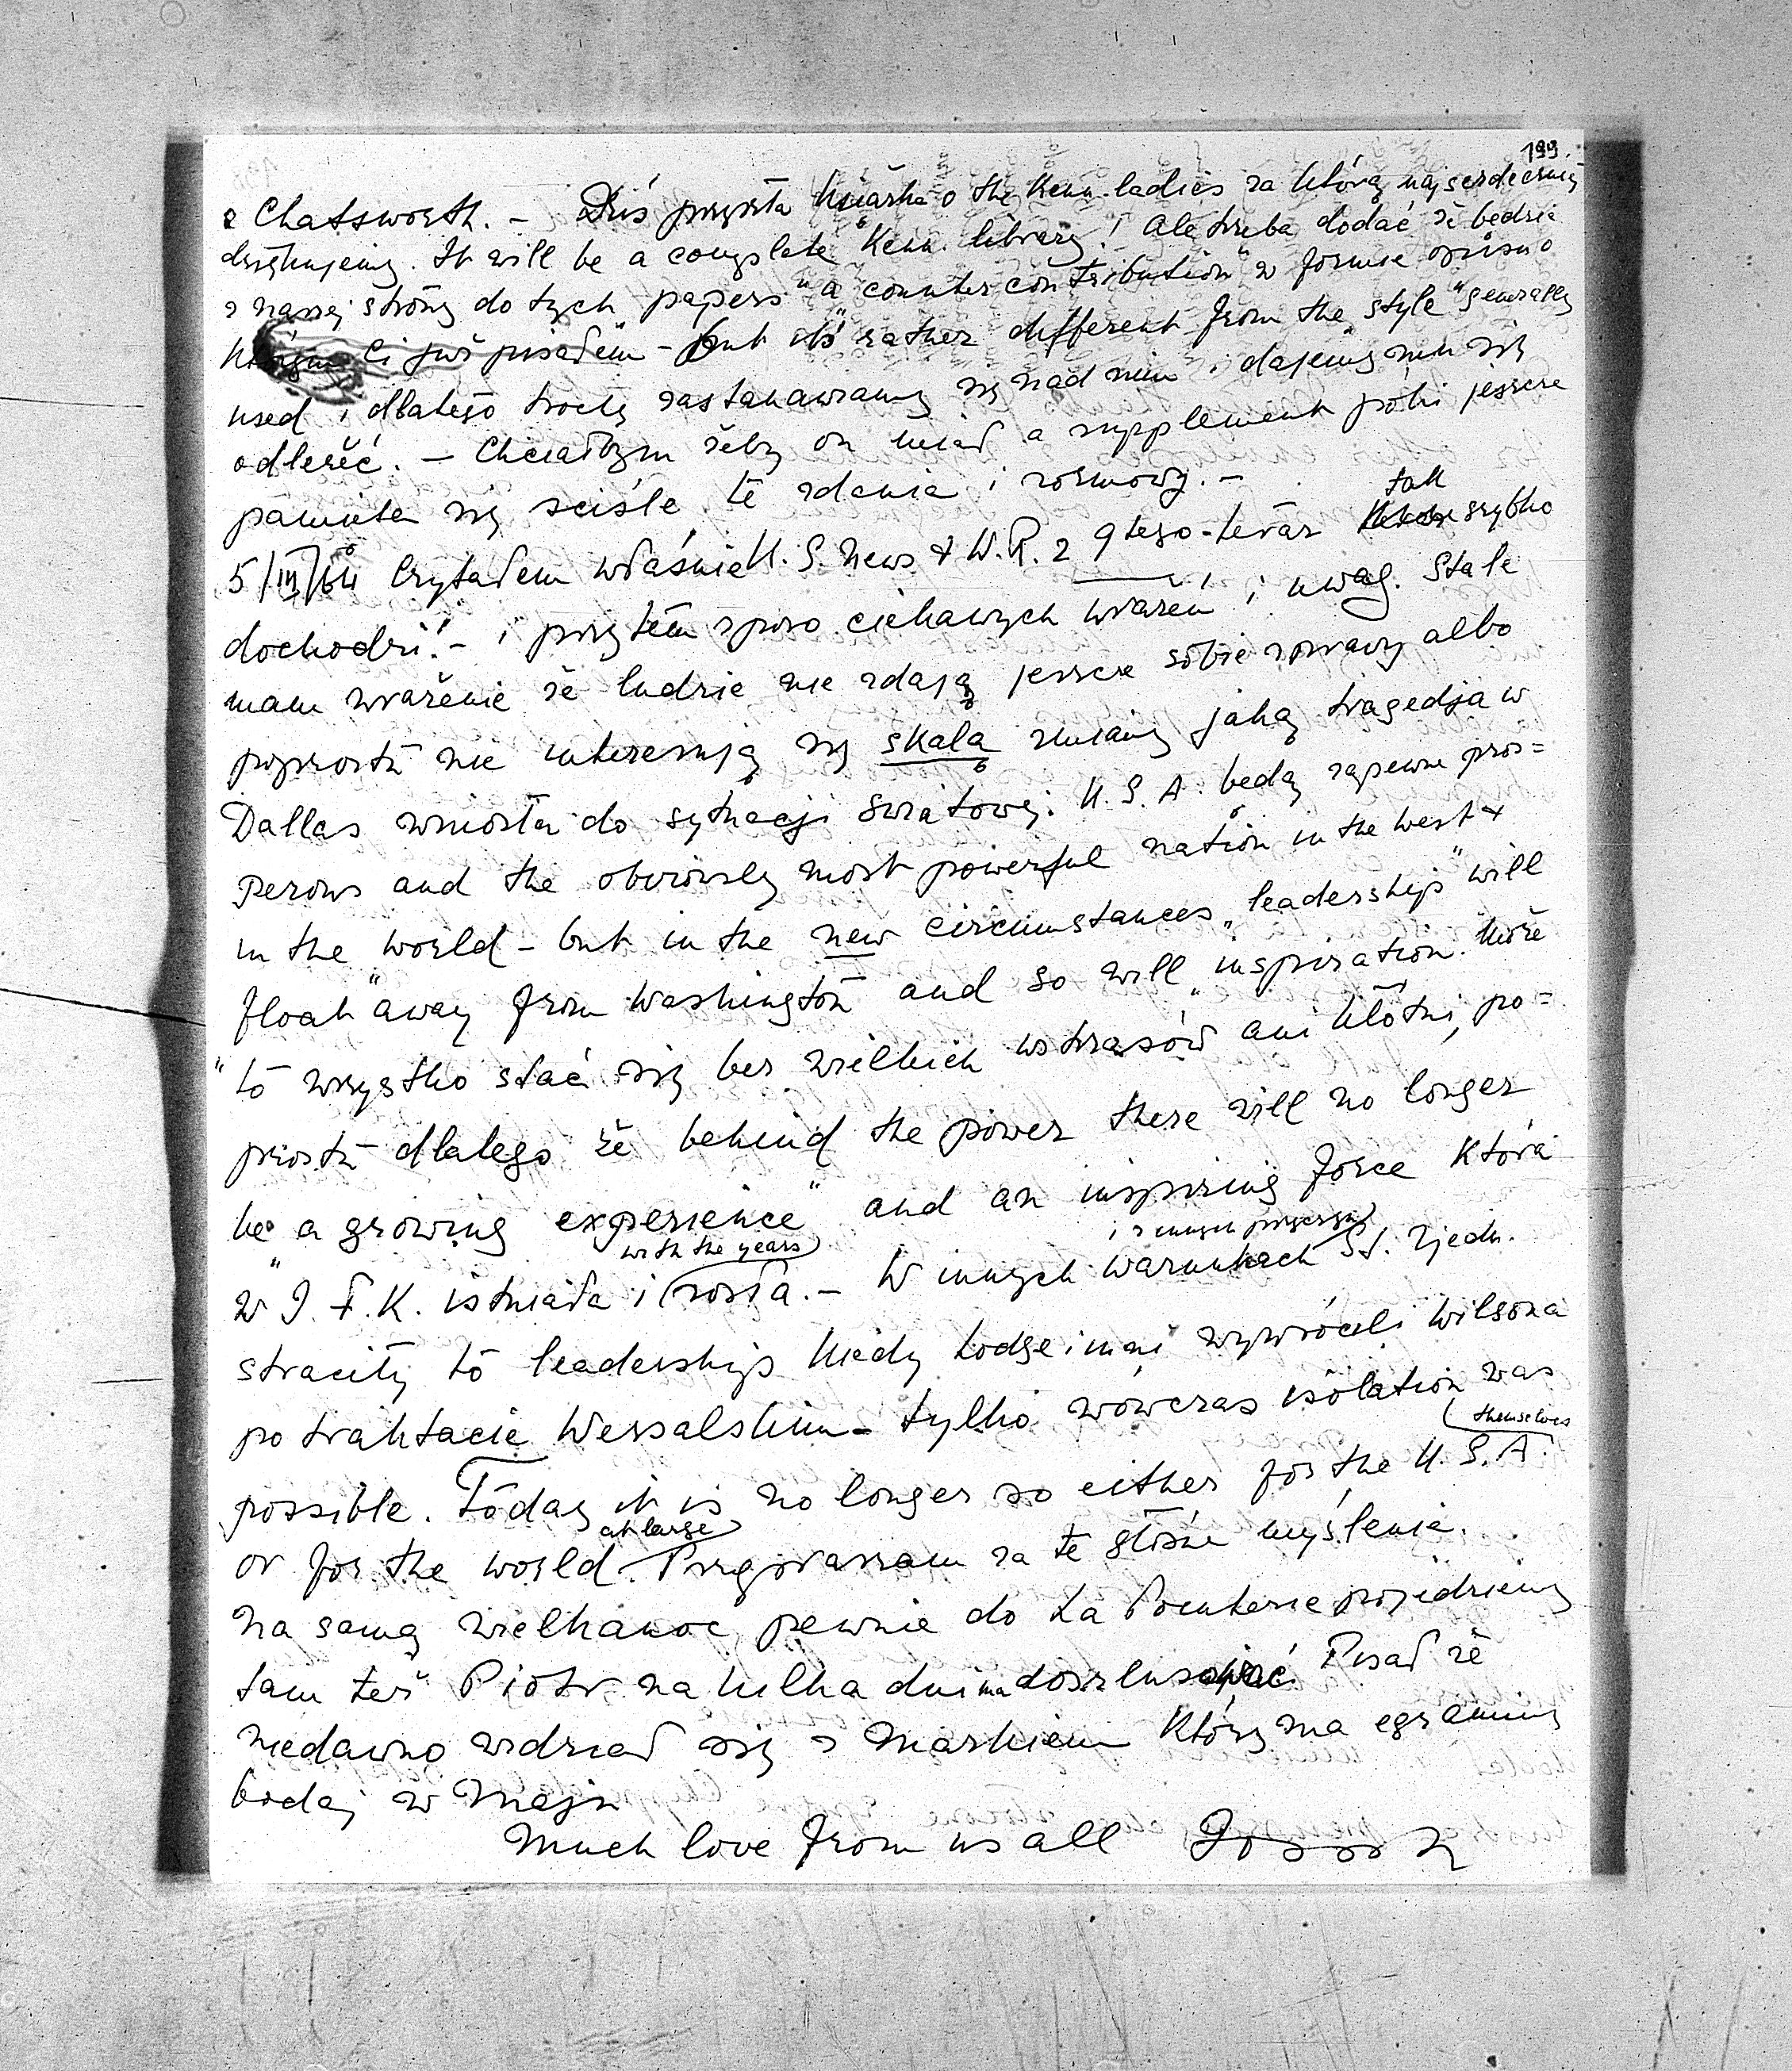 199.
z Chatsworth. - Dziś przyszła książka o the Kenn. ladies za którą najserdeczniej
dziękujemy. It will be a complete "Kenn. library"! Ale trzeba dodać że będzie
z naszej strony do tych "papers" a "counter contribution" w formie opisu o
którym Ci już pisałem - but its rather different from the style "generally
used" i dlatego trochę zastanawiamy się nad nim i dajemy mu się
odleżeć. - Chciałbym żeby on miał a supplement póki jeszcze
pamięta się ściśle te zdania i rozmowy. -
tak
5/III/64 Czytałem właśnie U. S. News & W. R. z 9 tego - teraz szybko
dochodzi! - i przytem sporo ciekawych wrażeń i uwag. Stale
mam wrażenie że ludzie nie zdają jeszcze sobie sprawy albo
poprostu nie interesują się skalą zmiany jaką tragedja w
Dallas wniosła do sytuacji światowej. U. S. A. będą zapewne pros=
perous and the obviously most powerful nation in the West &
in the world - but in the new circumstances "leadership" will
float "away from Washington and so will "inspiration". Może
"to wszystko stać się bez wielkich wstrząsów ani kłótni, po=
prostu dlatego że behind the power there will no longer
be a "growing experience" and an inspiring force która
w J. F. K. istniała i rosła. - W innych warunkach St. Zjedn.
with the years
i z innych przyczyn
straciły to leadership kiedy Lodge i inni wywrócili Wilsona
po traktacie Wersalskim - tylko wówczas isolation was
possible. Today it is no longer so either for the U. S. A.
themselves
or for the world. Przepraszam za te głośne myślenie.
at large
Na samą Wielkanoc pewnie do La Pointerie pojedziemy
tam też Piotr na kilka dni ma Pisał że
niedawno widział się z Markiem który ma egzaminy
bodaj w Maju
Much love from us all